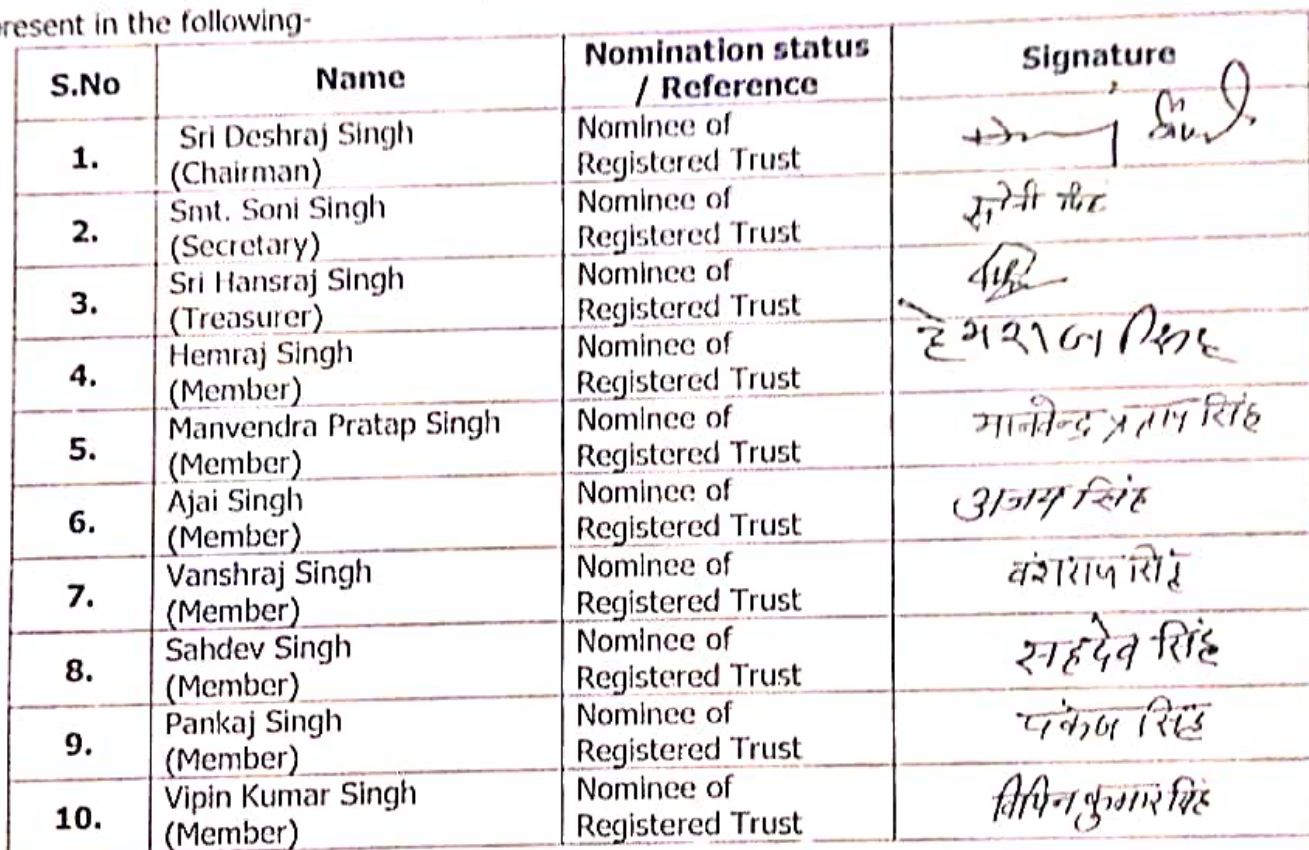 resent in the following-
S.No Name Nomination status / Reference Signature
1. Sri Deshraj Singh (Chairman) Nominee of Registered Trust
2. Smt. Soni Singh (Secretary) Nominee of Registered Trust सोनी सिंह
3. Sri Hansraj Singh (Treasurer) Nominee of Registered Trust
4. Hemraj Singh (Member) Nominee of Registered Trust हेमराज सिंह
5. Manvendra Pratap Singh (Member) Nominee of Registered Trust मानवेन्द्र प्रताप सिंह
6. Ajai Singh (Member) Nominee of Registered Trust अजय सिंह
7. Vanshraj Singh (Member) Nominee of Registered Trust वंशराज सिंह
8. Sahdev Singh (Member) Nominee of Registered Trust सहदेव सिंह
9. Pankaj Singh (Member) Nominee of Registered Trust पंकज सिंह
10. Vipin Kumar Singh (Member) Nominee of Registered Trust विपिन कुमार सिंह